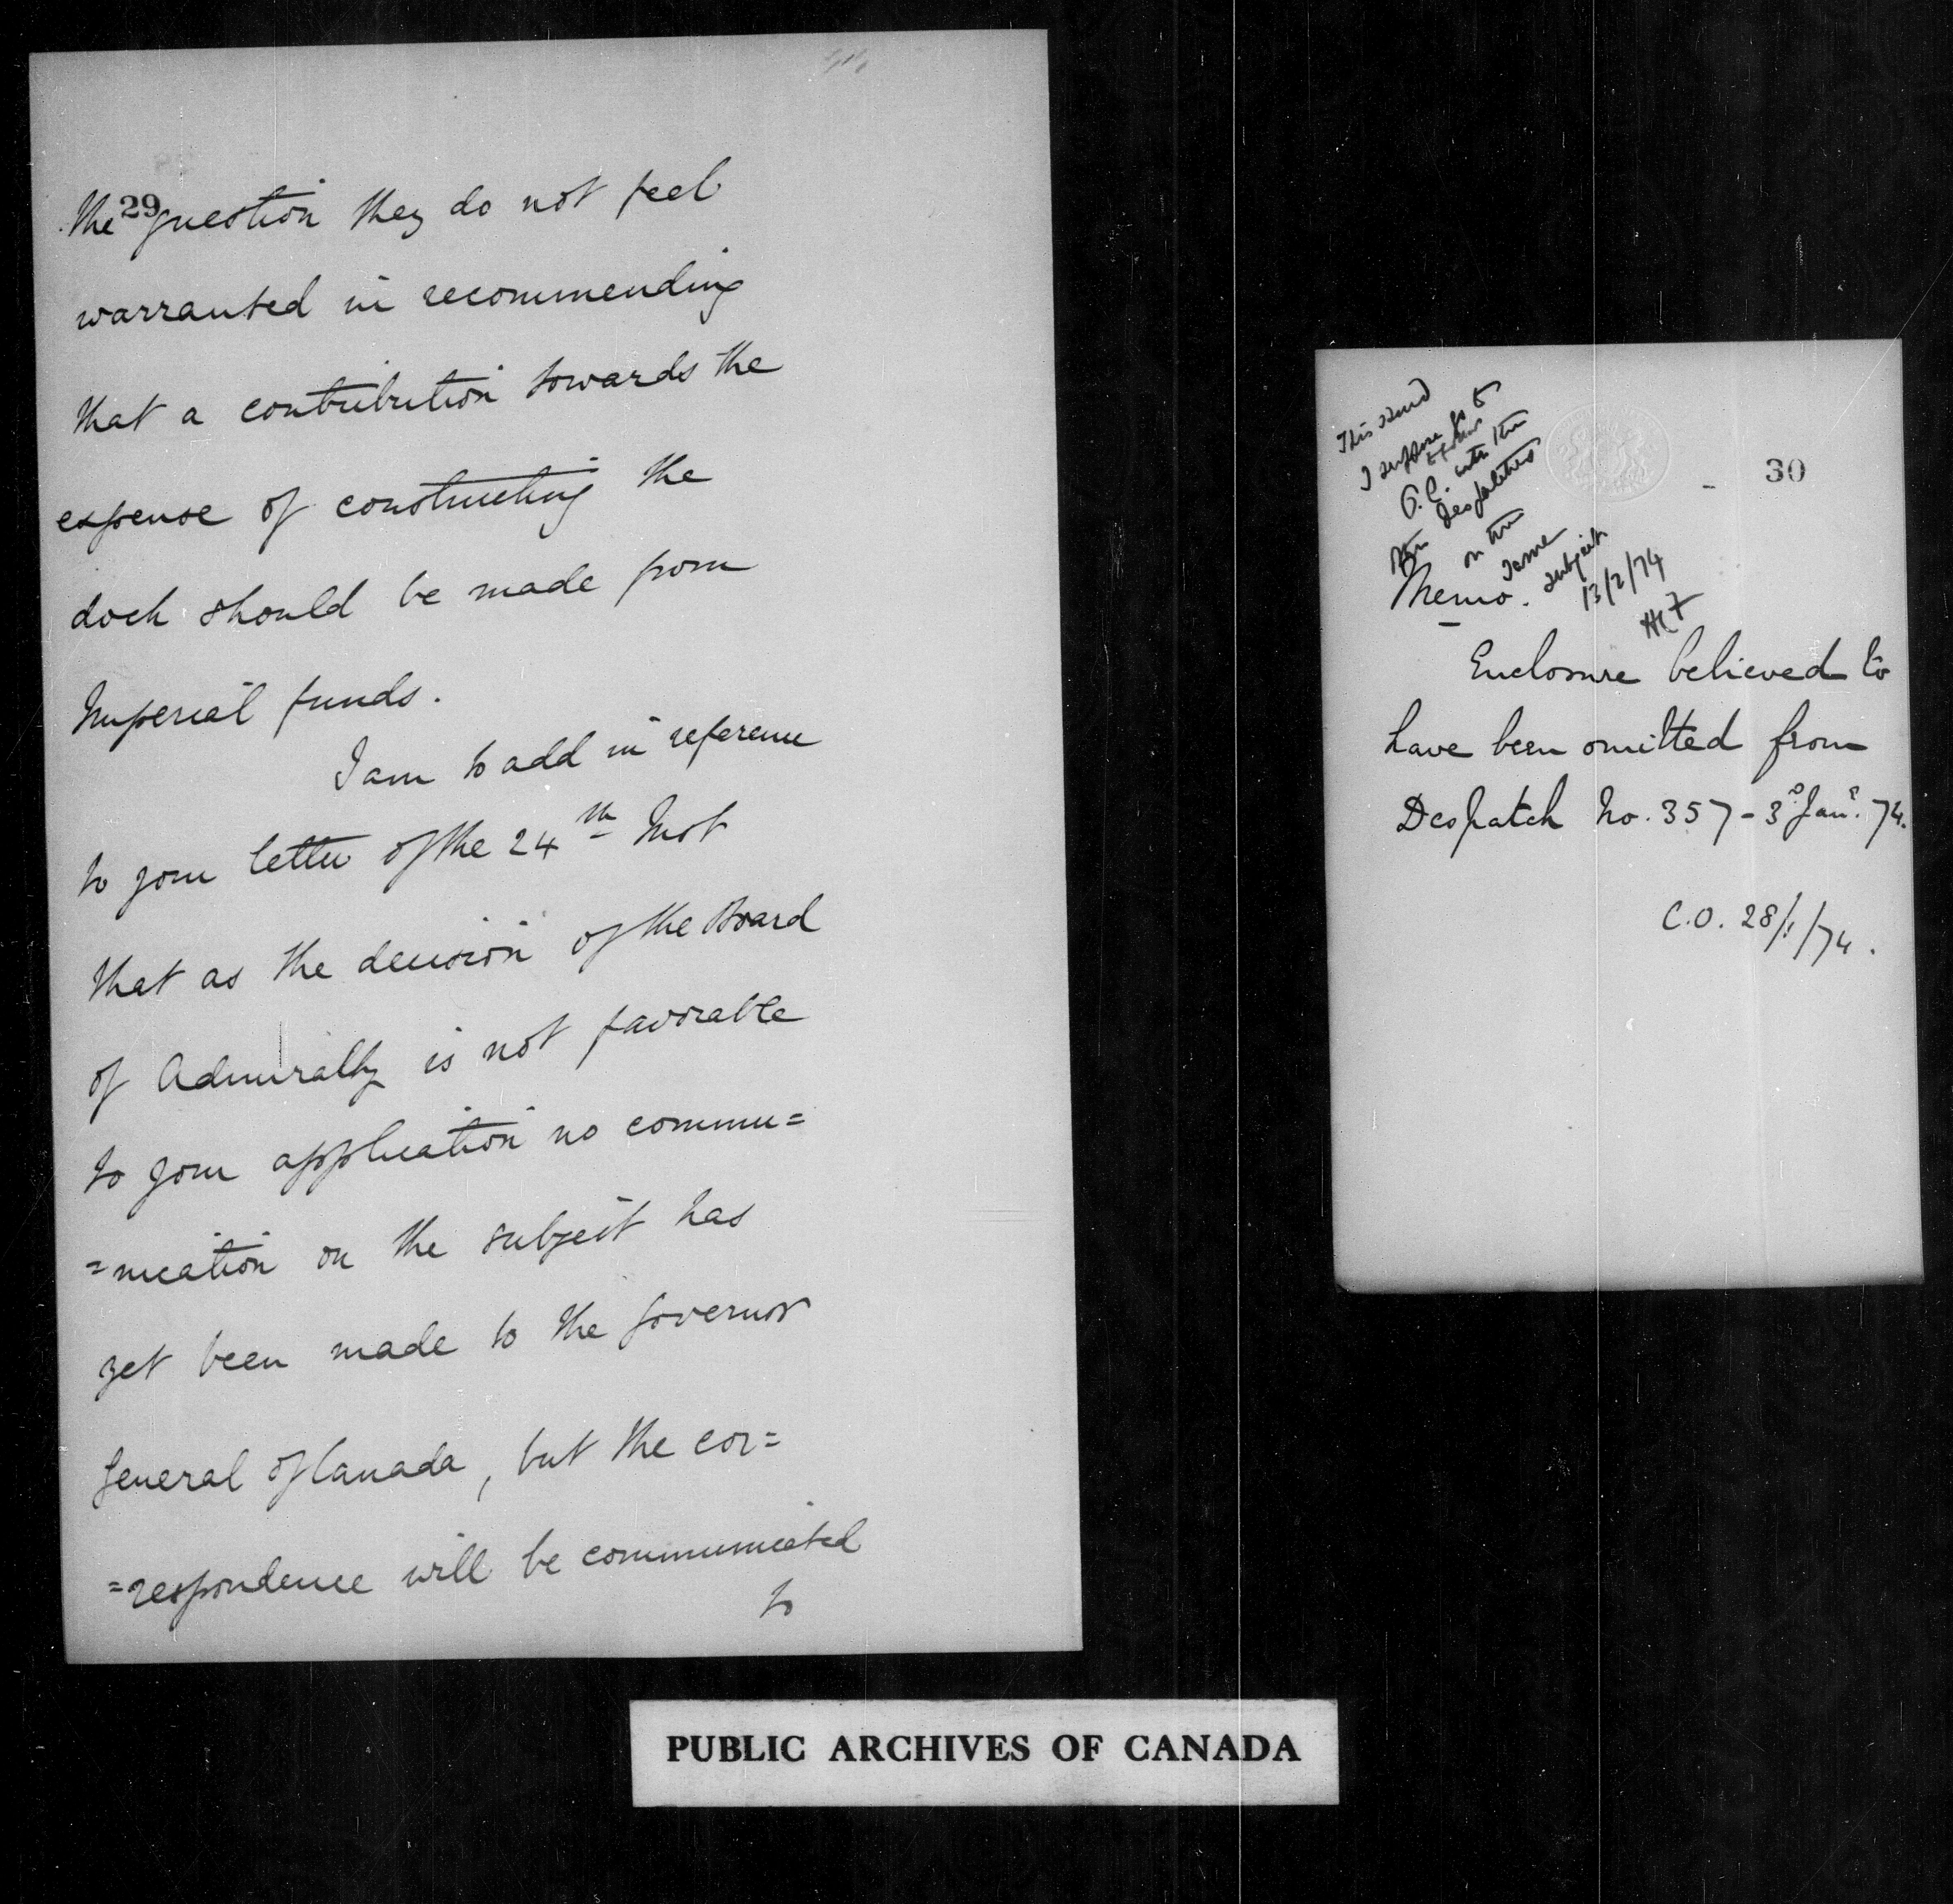 29
the question they do not feel
warranted in recommending
that a contribution towards the
expense of constructing the
dock should be made from
Imperial funds.
I am to add in reference
to your letter of the 24th Inst
that as the decision of the Board
of Admiralty is not favorable
to your application no commu=
=nication on the subject has
yet been made to the Governor
General of Canada, but the cor=
=respondence will be communicated
to
30
This
I suppose to
P.C. with the
despatches
on the
same
subject
13/2/74
Memo.
Enclosure believed to
have been omitted from
Despatch No. 357 - 3d Jany. 74.
C.O. 28/1/74.
PUBLIC ARCHIVES OF CANADA